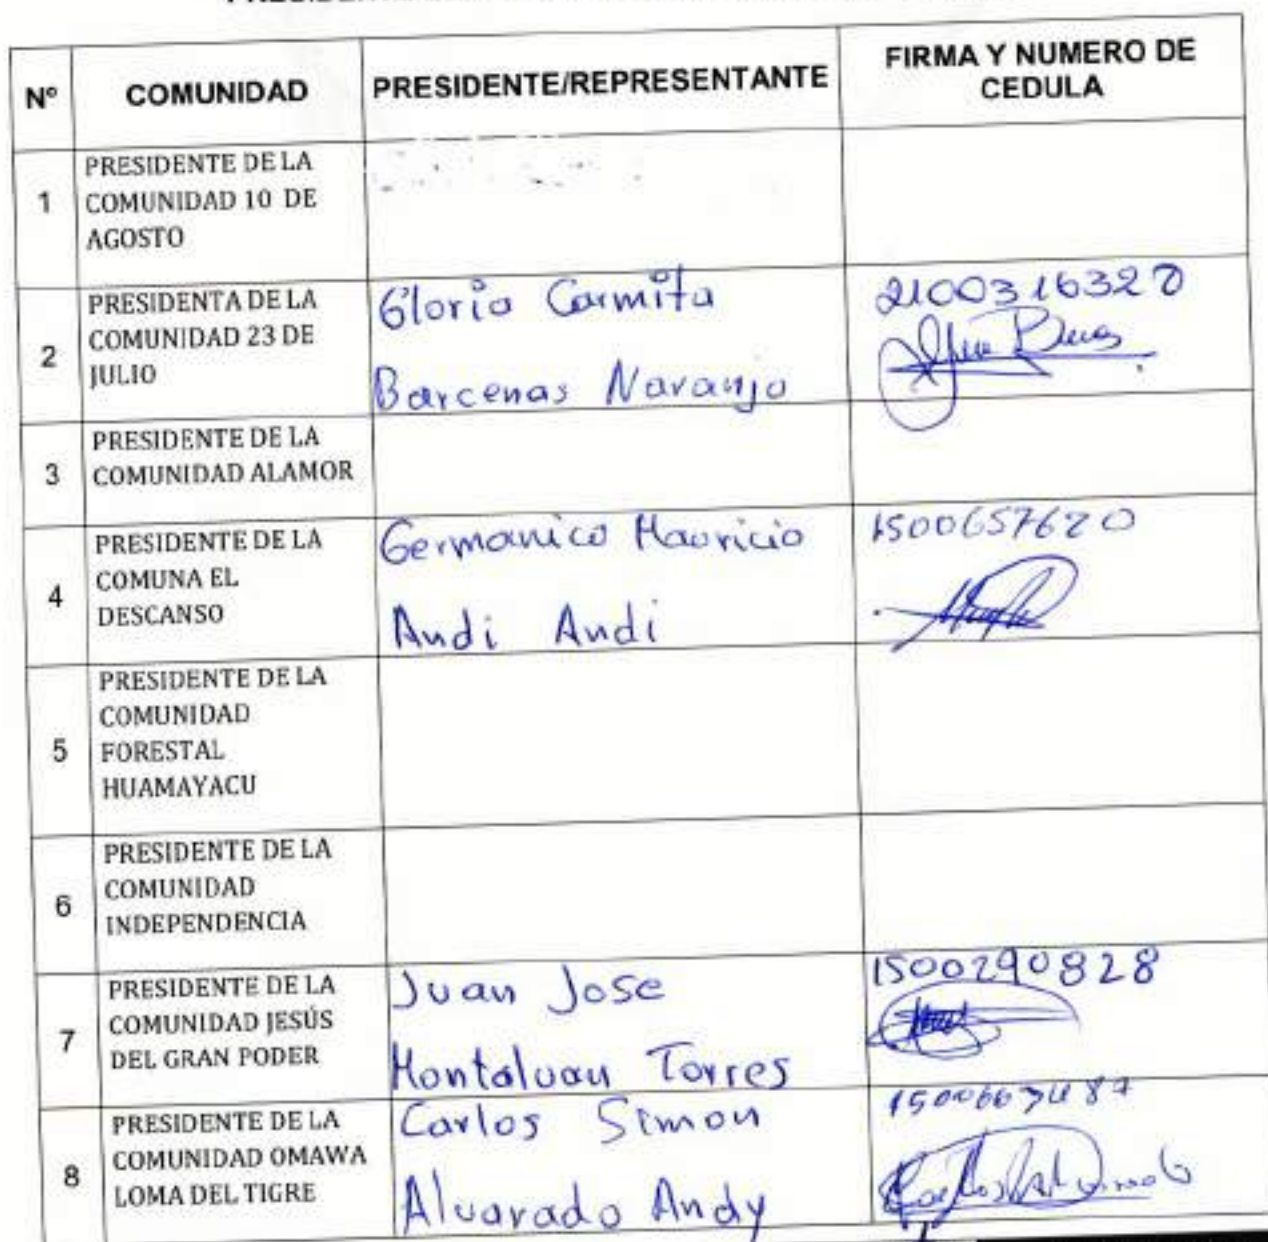 Nº COMUNIDAD PRESIDENTE/REPRESENTANTE FIRMA Y NUMERO DE
CEDULA
1
PRESIDENTE DE LA
COMUNIDAD 10 DE
AGOSTO
2
PRESIDENTA DE LA
COMUNIDAD 23 DE
JULIO
Gloria Carmita
Barcenas Naranjo
2100316320
3
PRESIDENTE DE LA
COMUNIDAD ALAMOR
4
PRESIDENTE DE LA
COMUNA EL
DESCANSO
Germanico Mauricio
Andi Andi
1500657620
5
PRESIDENTE DE LA
COMUNIDAD
FORESTAL
HUAMAYACU
6
PRESIDENTE DE LA
COMUNIDAD
INDEPENDENCIA
7
PRESIDENTE DE LA
COMUNIDAD JESÚS
DEL GRAN PODER
Juan Jose
Montaluan Torres
1500290828
8
PRESIDENTE DE LA
COMUNIDAD OMAWA
LOMA DEL TIGRE
Carlos Simon
Alvarado Andy